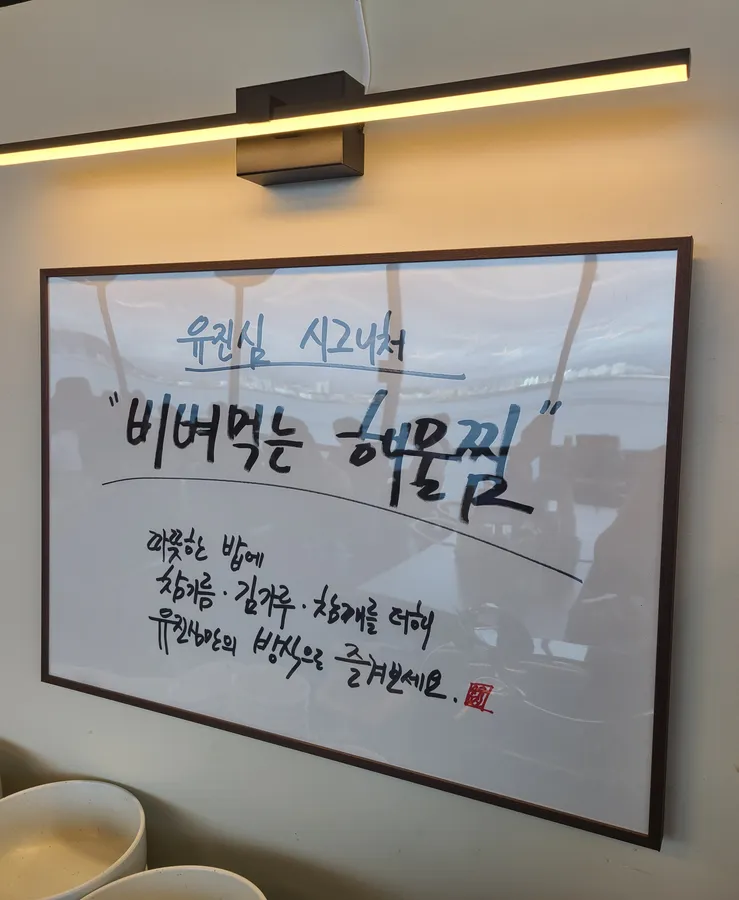 유진심 시그니처
"비벼먹는 해물찜"
따뜻한 밥에
참기름·김가루·참깨를 더해
유진심만의 방식으로 즐겨보세요.